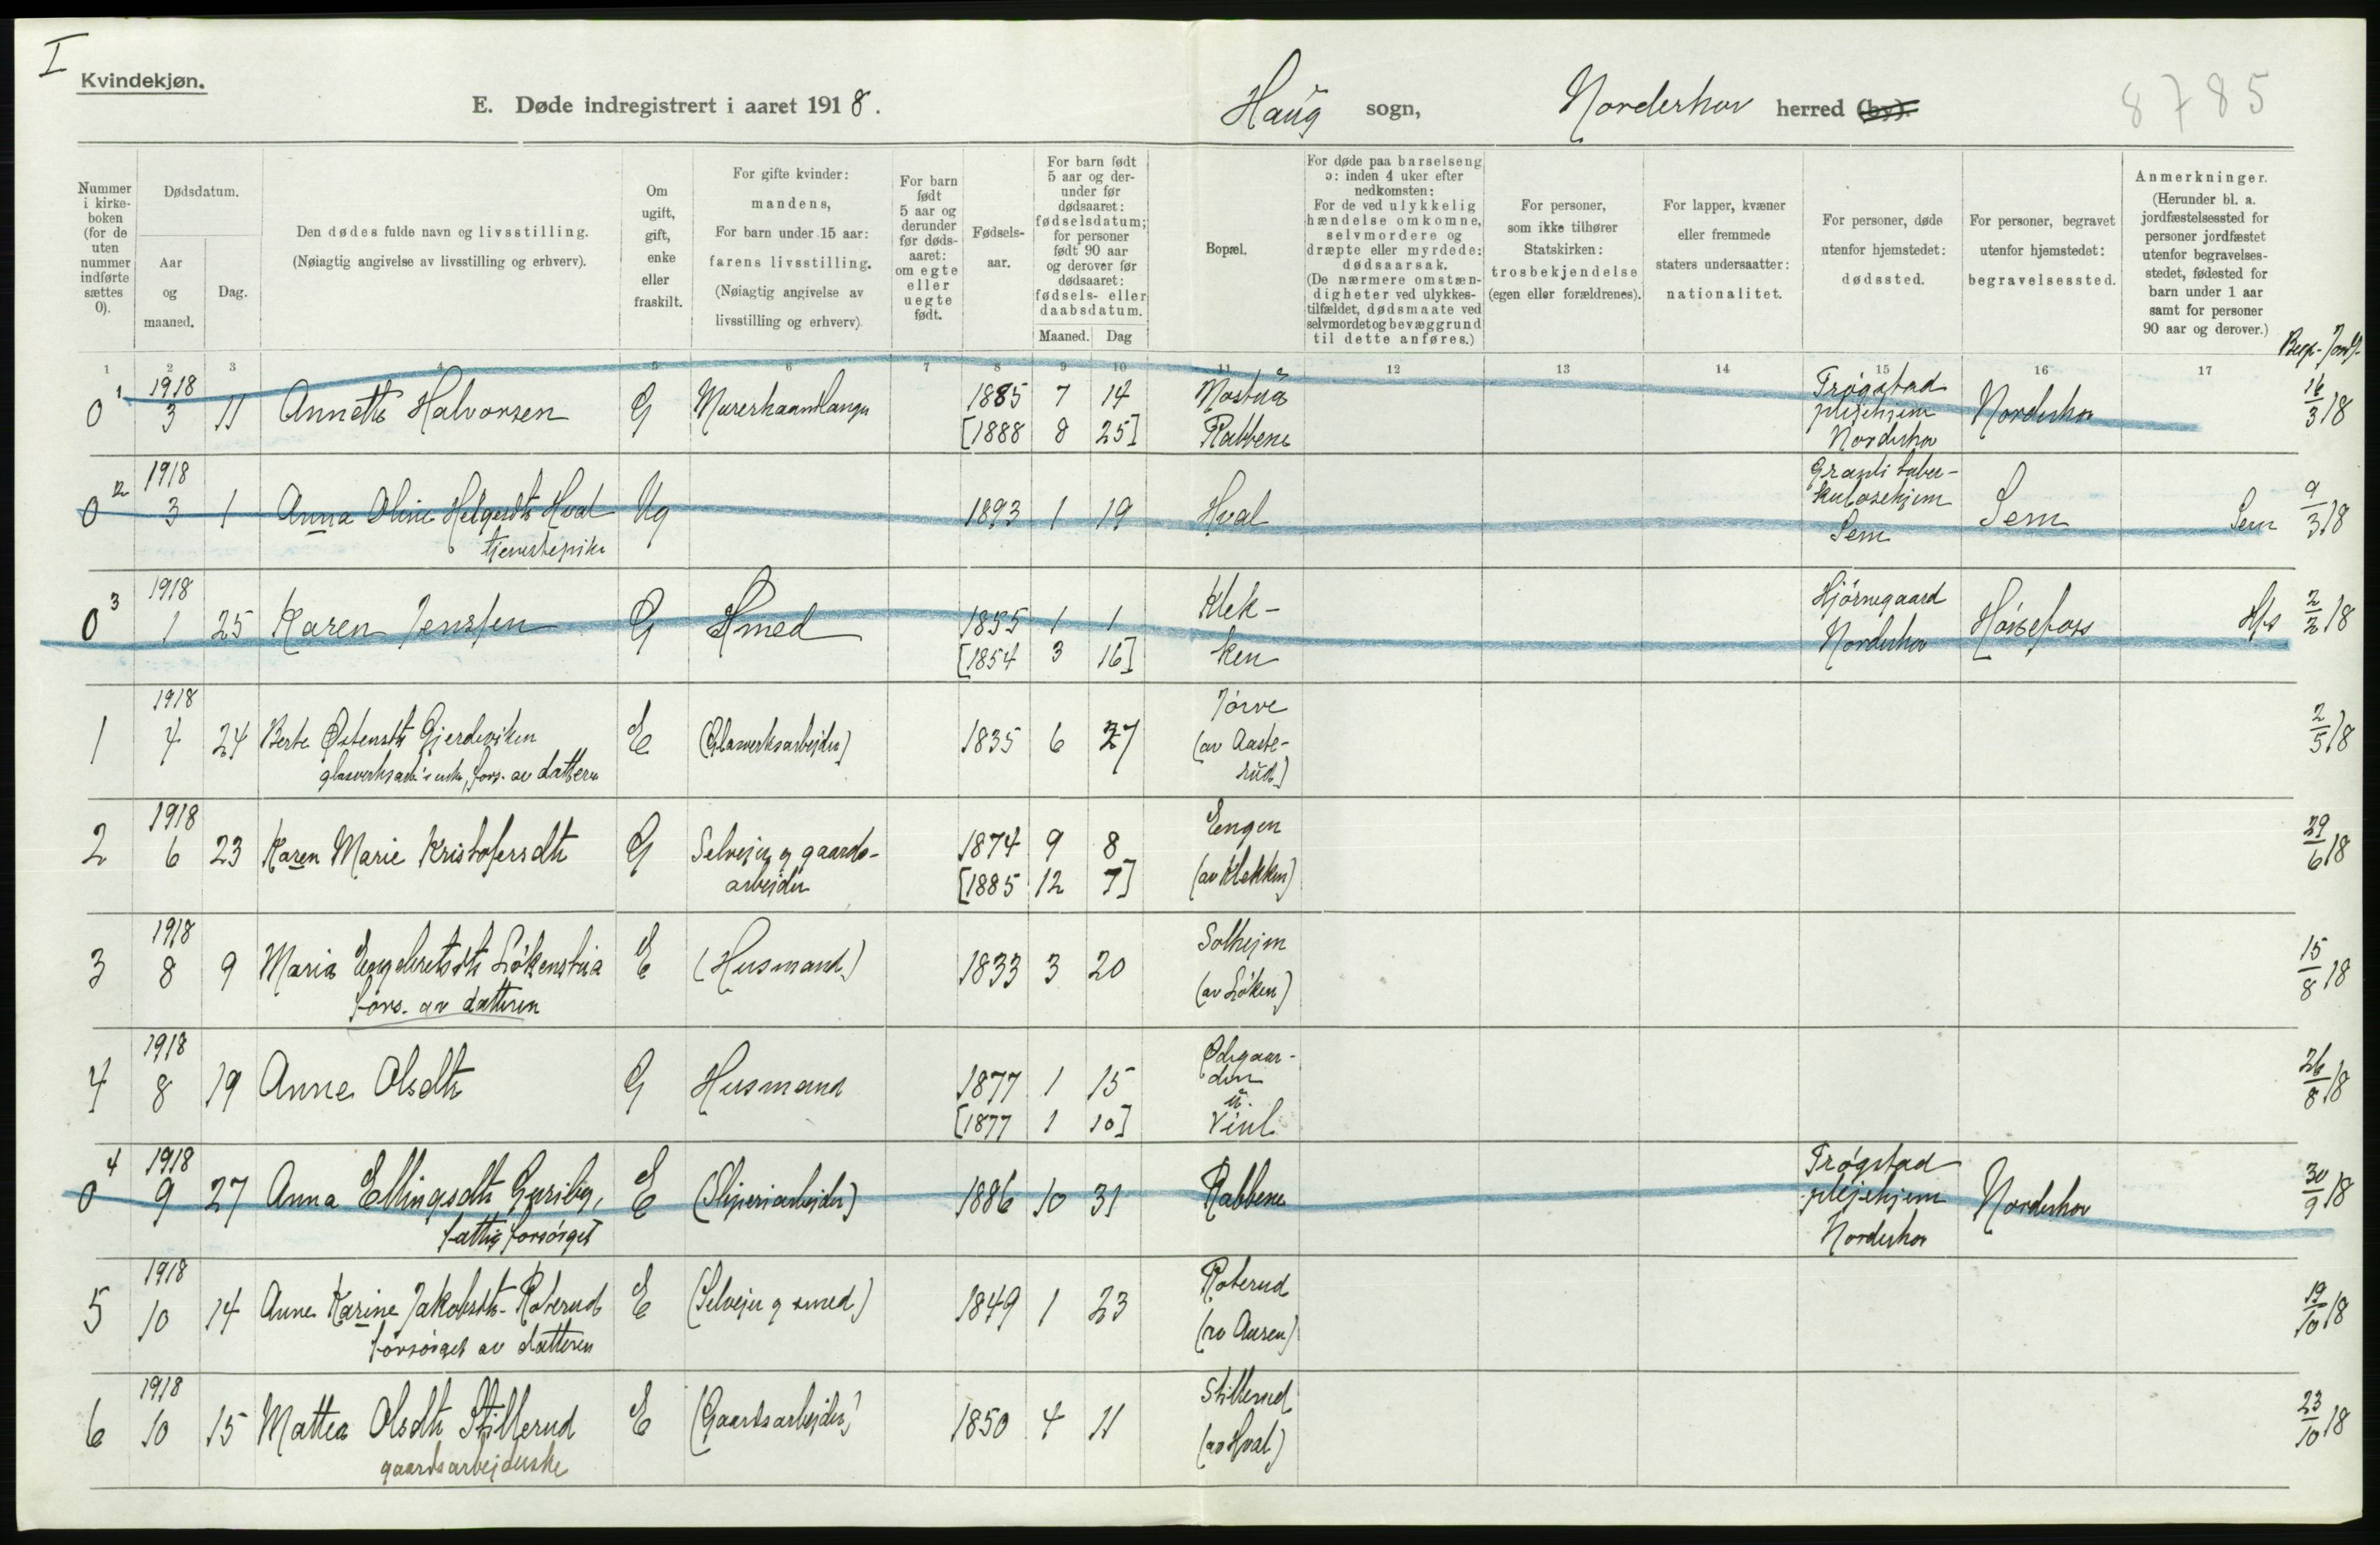 I
Kvindekjøn.
E. Døde indregistrert i aaret 1918.
Haug sogn, Norderhov herred (by).
8785
Nummer i kirke-boken (for de uten nummer indførte sættes 0).
Dødsdatum.
Aar og maaned.
Dag.
Den dødes fulde navn og livsstilling.
(Nøiagtig angivelse av livsstilling og erhverv).
Om ugift, gift, enke eller fraskilt.
For gifte kvinder: mandens,
For barn under 15 aar: farens livsstilling.
(Nøiagtig angivelse av livsstilling og erhverv).
For barn født 5 aar og derunder før døds-aaret: om egte eller uegte født.
Fødsels-aar.
For barn født 5 aar og der-under før dødsaaret: fødselsdatum; for personer født 90 aar og derover før dødsaaret: fødsels- eller daabsdatum.
Maaned. Dag
Bopæl.
For døde paa barselseng ɔ: inden 4 uker efter nedkomsten:
For de ved ulykkelig hændelse omkomne, selvmordere og dræpte eller myrdede: dødsaarsak.
(De nærmere omstæn-digheter ved ulykkes-tilfældet, dødsmaate ved selvmordet og bevæggrund til dette anføres.)
For personer, som ikke tilhører Statskirken: trosbekjendelse (egen eller forældrenes).
For lapper, kvæner eller fremmede staters undersaatter: nationalitet.
For personer, døde utenfor hjemstedet: dødssted.
For personer, begravet utenfor hjemstedet: begravelsessted.
Anmerkninger.
(Herunder bl. a. jordfæstelsessted for personer jordfæstet utenfor begravelses-stedet, fødested for barn under 1 aar samt for personer 90 aar og derover.)
1 2 3 4 5 6 7 8 9 10 11 12 13 14 15 16 17
0 1 1918 3 11 Annette Halvorsen G Murerhaandlanger 1885 7 14 Trøgstad plejehjem Norderhov Norderhov 16/3 18
[1888 8 25] Rabbene
0 2 1918 3 1 Anna Oline Helgesdtr Hval Ug 1893 1 19 Hval Granli tuber-kulosehjem Sem Sem Sem 9/3 18
tjenestepike
0 3 1918 1 25 Karen Jensen G Smed 1855 1 1 Klek- Hjørnegaard Norderhov Hønefoss Hfs 2/2 18
[1854 3 16] ken
1 1918 4 24 Berte Østensdtr Gjerdeviken E (Glasverksarbejder) 1835 6 27 Jørve (av Aaste-rud) 2/5 18
fors. av datteren
2 1918 6 23 Karen Marie Kristofersdtr G Selvejer og gaards-arbejder 1874 9 8 Engen (av Klekken) 29/6 18
[1885 12 7]
3 1918 8 9 Maria Engebretsdtr Løkenstua E (Husmand) 1833 3 20 Solhejm (av Løken) 15/8 18
fors. av datteren
4 1918 8 19 Anne Olsdtr G Husmand 1877 1 15 Ødegaar-den u. 26/8 18
[1877 1 10]
0 4 1918 9 27 Anna Ellingsdtr E (Sliperiarbejder) 1886 10 31 Rabbene Trøgstad plejehjem Norderhov Norderhov 30/9 18
fattig forsørget
5 1918 10 14 Anne Karine Jakobsdtr Roterud E (Selvejer og smed) 1849 1 23 Roterud (av Aasen) 19/10 18
forsørget av datteren
6 1918 10 15 Mattea Olsdtr Stillerud E (Gaardsarbejder) 1850 4 11 Stillerud (av Hval) 23/10 18
gaardsarbejderske